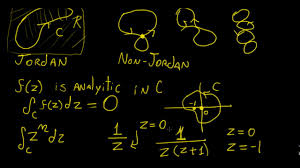 C R
JORDAN NON-JORDAN
f(z) is analyitic in C
∫_C f(z)dz = 0
C
-1 0
∫_C z^n dz 1/z z=0 1/(z(z+1)) z=0
z=-1